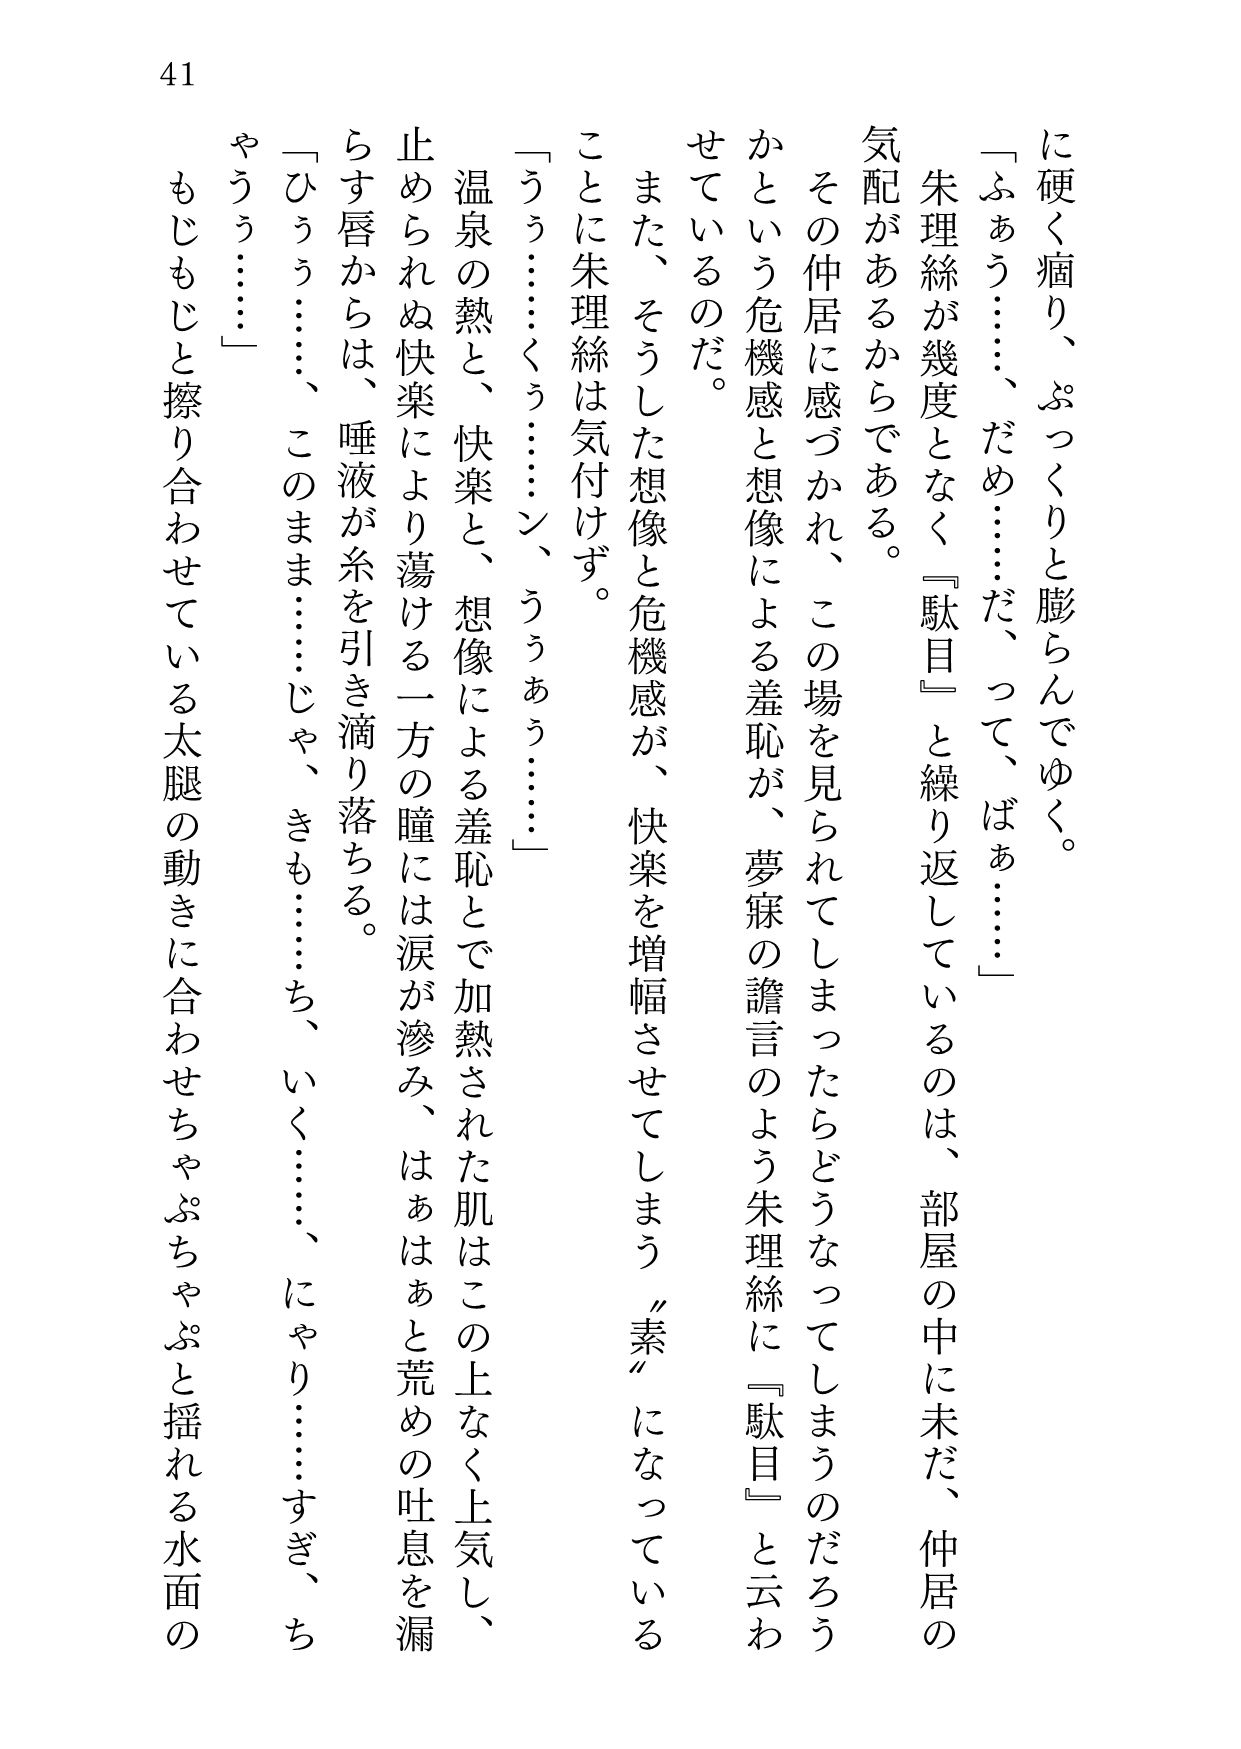 41
に硬く痼り、ぷっくりと膨らんでゆく。
「ふぁう……、だめ……だ、って、ばぁ……」
　朱理絲が幾度となく『駄目』と繰り返しているのは、部屋の中に未だ、仲居の
気配があるからである。
　その仲居に感づかれ、この場を見られてしまったらどうなってしまうのだろう
かという危機感と想像による羞恥が、夢寐の譫言のよう朱理絲に『駄目』と云わ
せているのだ。
　また、そうした想像と危機感が、快楽を増幅させてしまう〝素〟になっている
ことに朱理絲は気付けず。
「うぅ……くぅ……ン、うぅぁう……」
　温泉の熱と、快楽と、想像による羞恥とで加熱された肌はこの上なく上気し、
止められぬ快楽により蕩ける一方の瞳には涙が滲み、はぁはぁと荒めの吐息を漏
らす唇からは、唾液が糸を引き滴り落ちる。
「ひぅぅ……、このまま……じゃ、きも……ち、いく……、にゃり……すぎ、ち
ゃうぅ……」
　もじもじと擦り合わせている太腿の動きに合わせちゃぷちゃぷと揺れる水面の